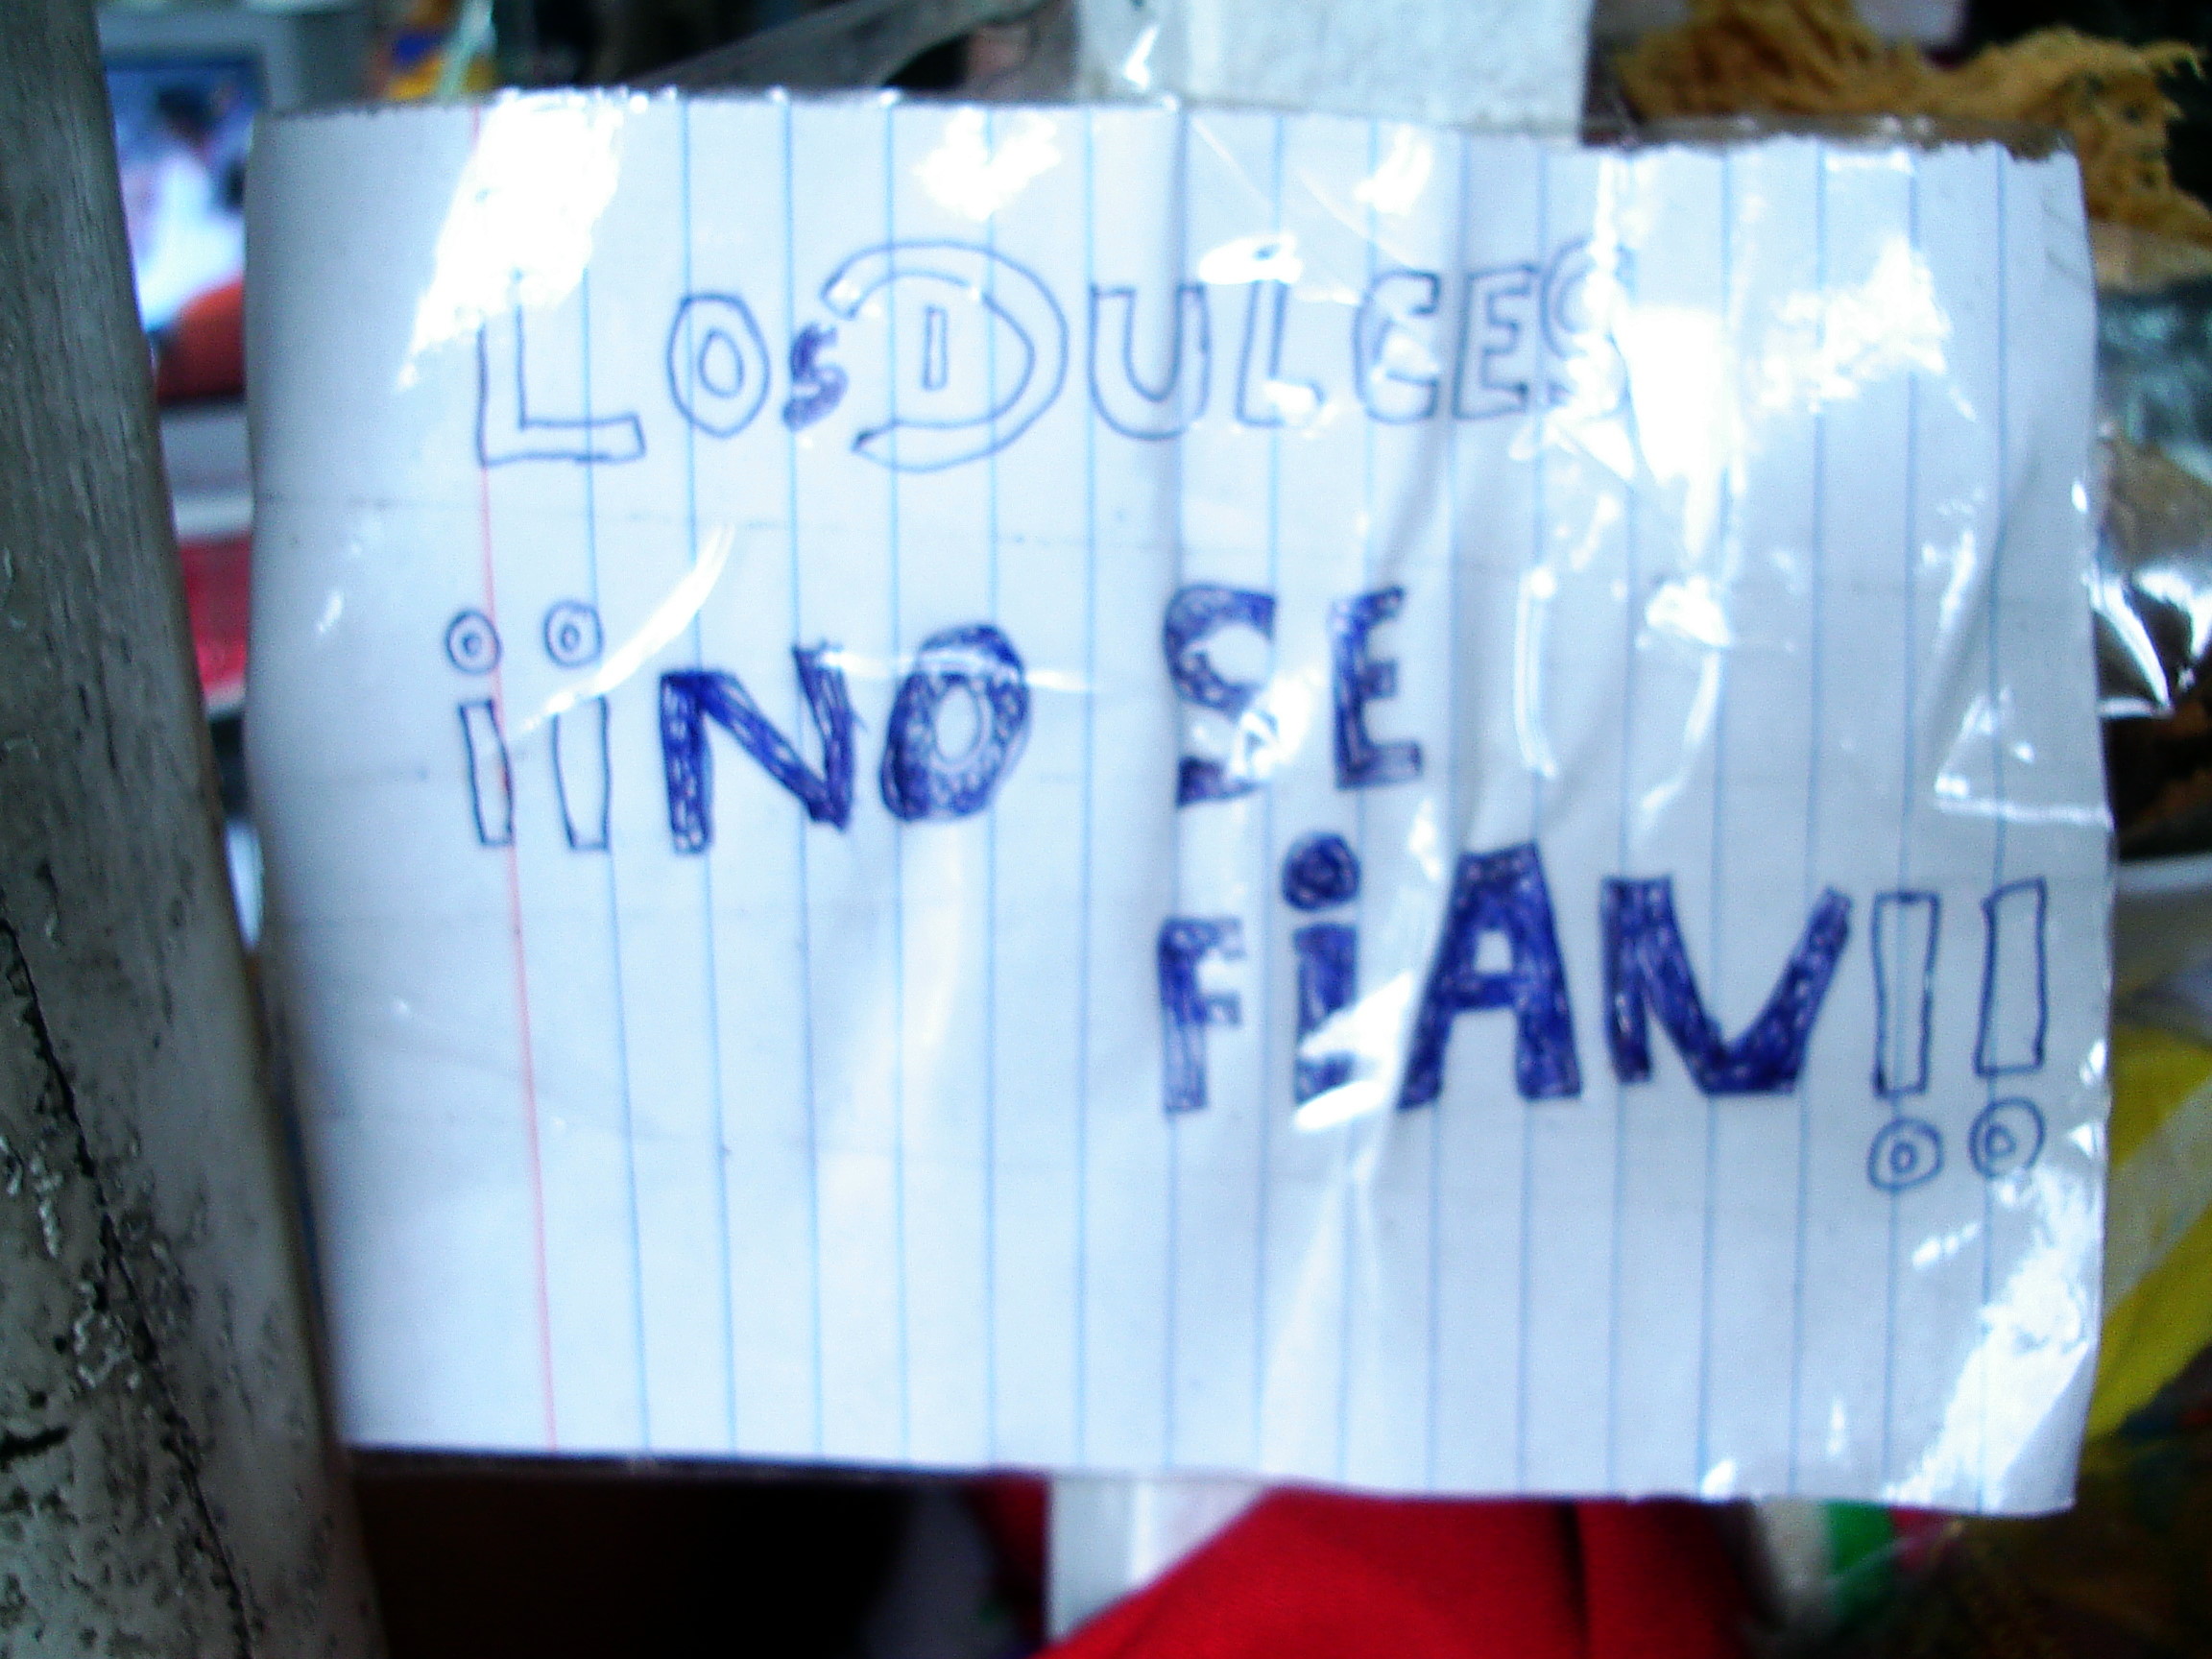 Los DULCES
¡¡NO SE
FiAN!!